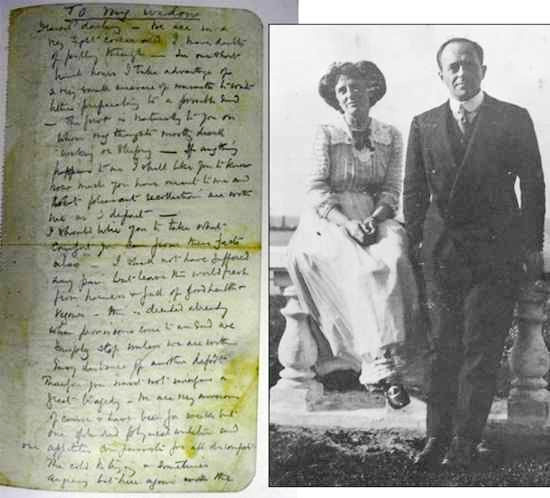 To my widow
Dearest darling — we are in a
very tight corner and I have doubts
of pulling through — In our short
lunch hours I take advantage of
a very small measure of warmth to write
letters preparatory to a possible end
— the first is naturally to you on
whom my thoughts mostly dwell
waking or sleeping — if anything
happens to me I shall like you to know
how much you have meant to me and
that pleasant recollections are with
me as I depart —
I should like you to take what
comfort you can from these facts
also — I shall not have suffered
any pain but leave the world fresh
from harness & full of good health &
vigour — this is decided already
when provisions come to an end we
simply stop unless we are within
easy distance of another depot
Therefore you must not imagine a
great tragedy — we are very anxious
of course & have been for weeks but
our splendid physical condition and
our appetites compensate for all discomfort
The cold is biting & sometimes
angering but here again the